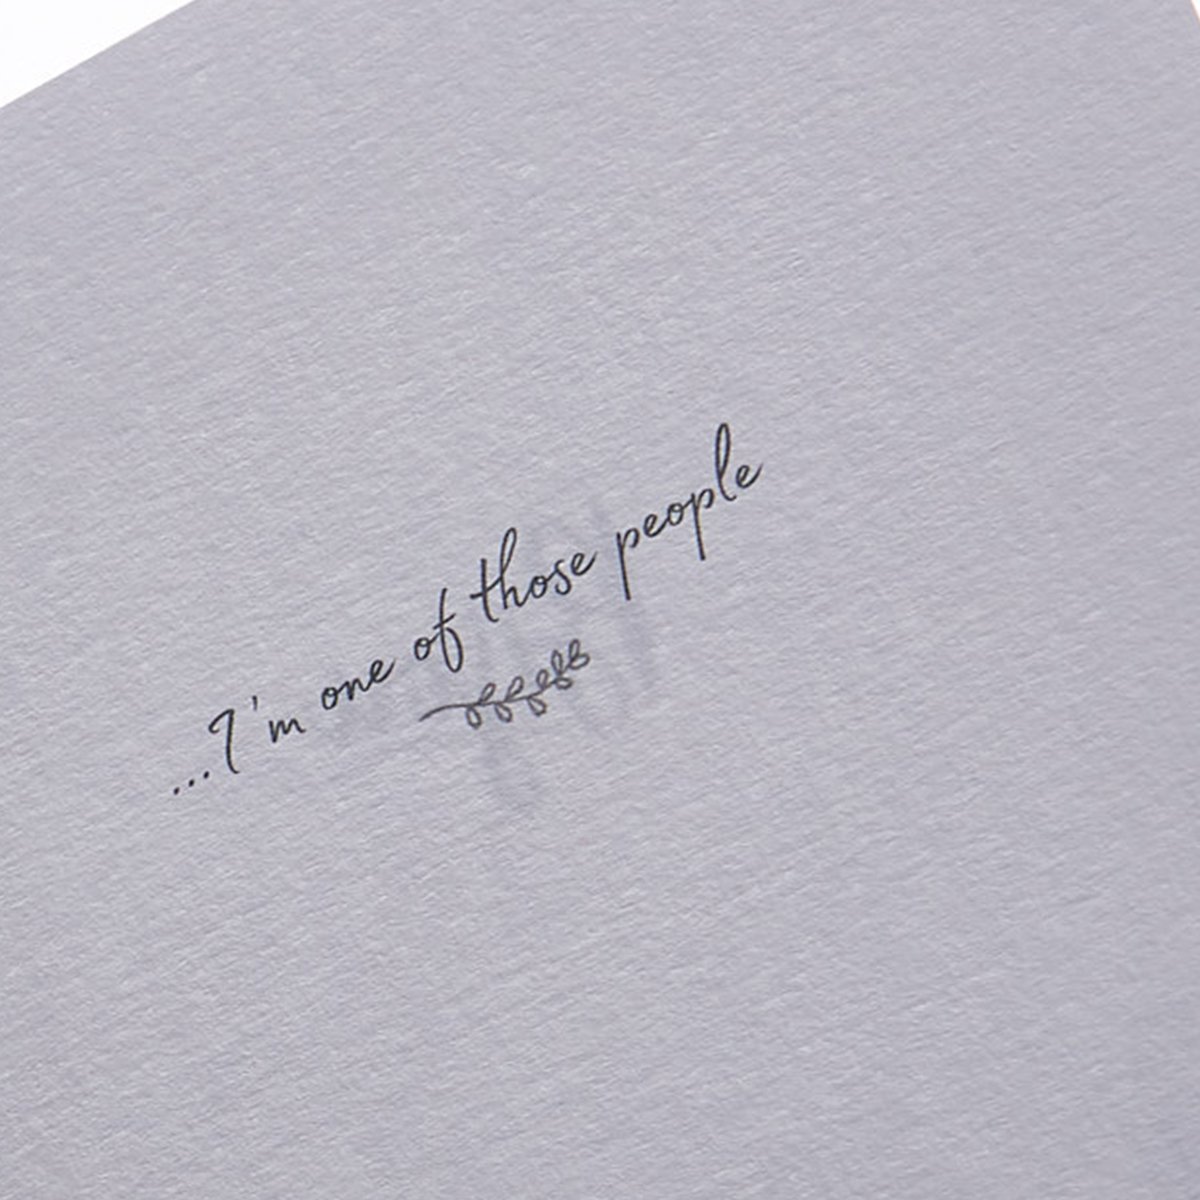 ...I'm one of those people